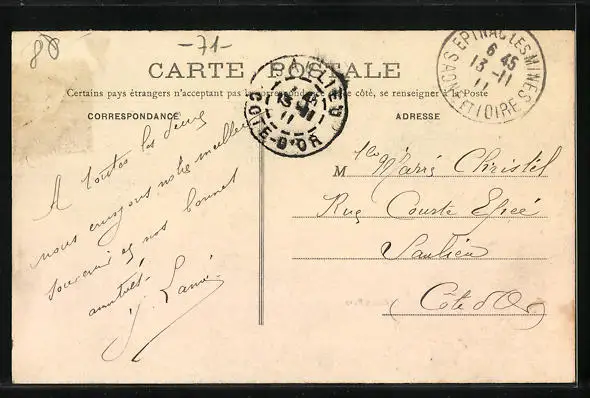 80
-71-
EPINAC LES MINES
6 45
13 -11
11
SAÔNE ET LOIRE
SAULIEU
13 -11
11
CÔTE-D'OR
CARTE POSTALE
Certains pays étrangers n'acceptant pas la correspondance de ce côté, se renseigner à la Poste
CORRESPONDANCE
ADRESSE
A toutes les deux
nous envoyons notre meilleur
souvenir et nos bonnes
amitiés.
M lle Marie Christel
Rue Courte Epée
Saulieu
Côte d'Or